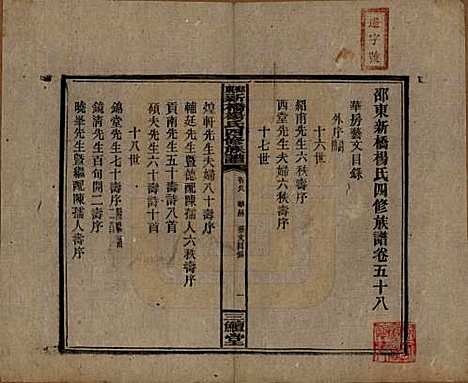 邵東新橋楊氏四修族譜卷五十八
華房藝文目錄
外序
十六世
紹南先生六秩壽序
西堂先生夫婦六秩壽序
十七世
新橋楊氏四修族譜
一
三鱣堂
煌軒先生夫婦六秩壽序
輔廷先生暨德配陳孺人六秩壽序
貢南先生五十壽詩八首
碩夫先生六十壽詩十首
十八世
錦堂先生
鏡清先生百旬開二壽序
曉峯先生暨繼配陳孺人壽序